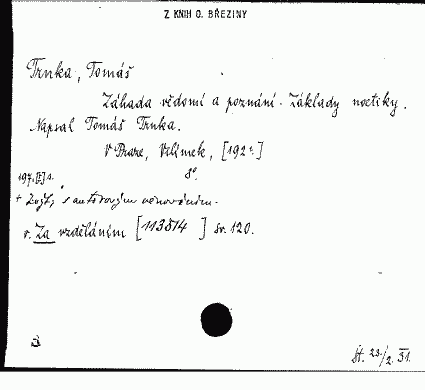 Z KNIH O. BŘEZINY
Trnka, Tomáš
Záhada vědomí a poznání. Základy noetiky.
Napsal Tomáš Trnka.
V Praze, Velímek, [192-]
8°.
197, [I] s.
+ Zvšt, s autorovým věnováním.
v. Za vzděláním [113514] sv. 120.
Št. 23/2. 31.